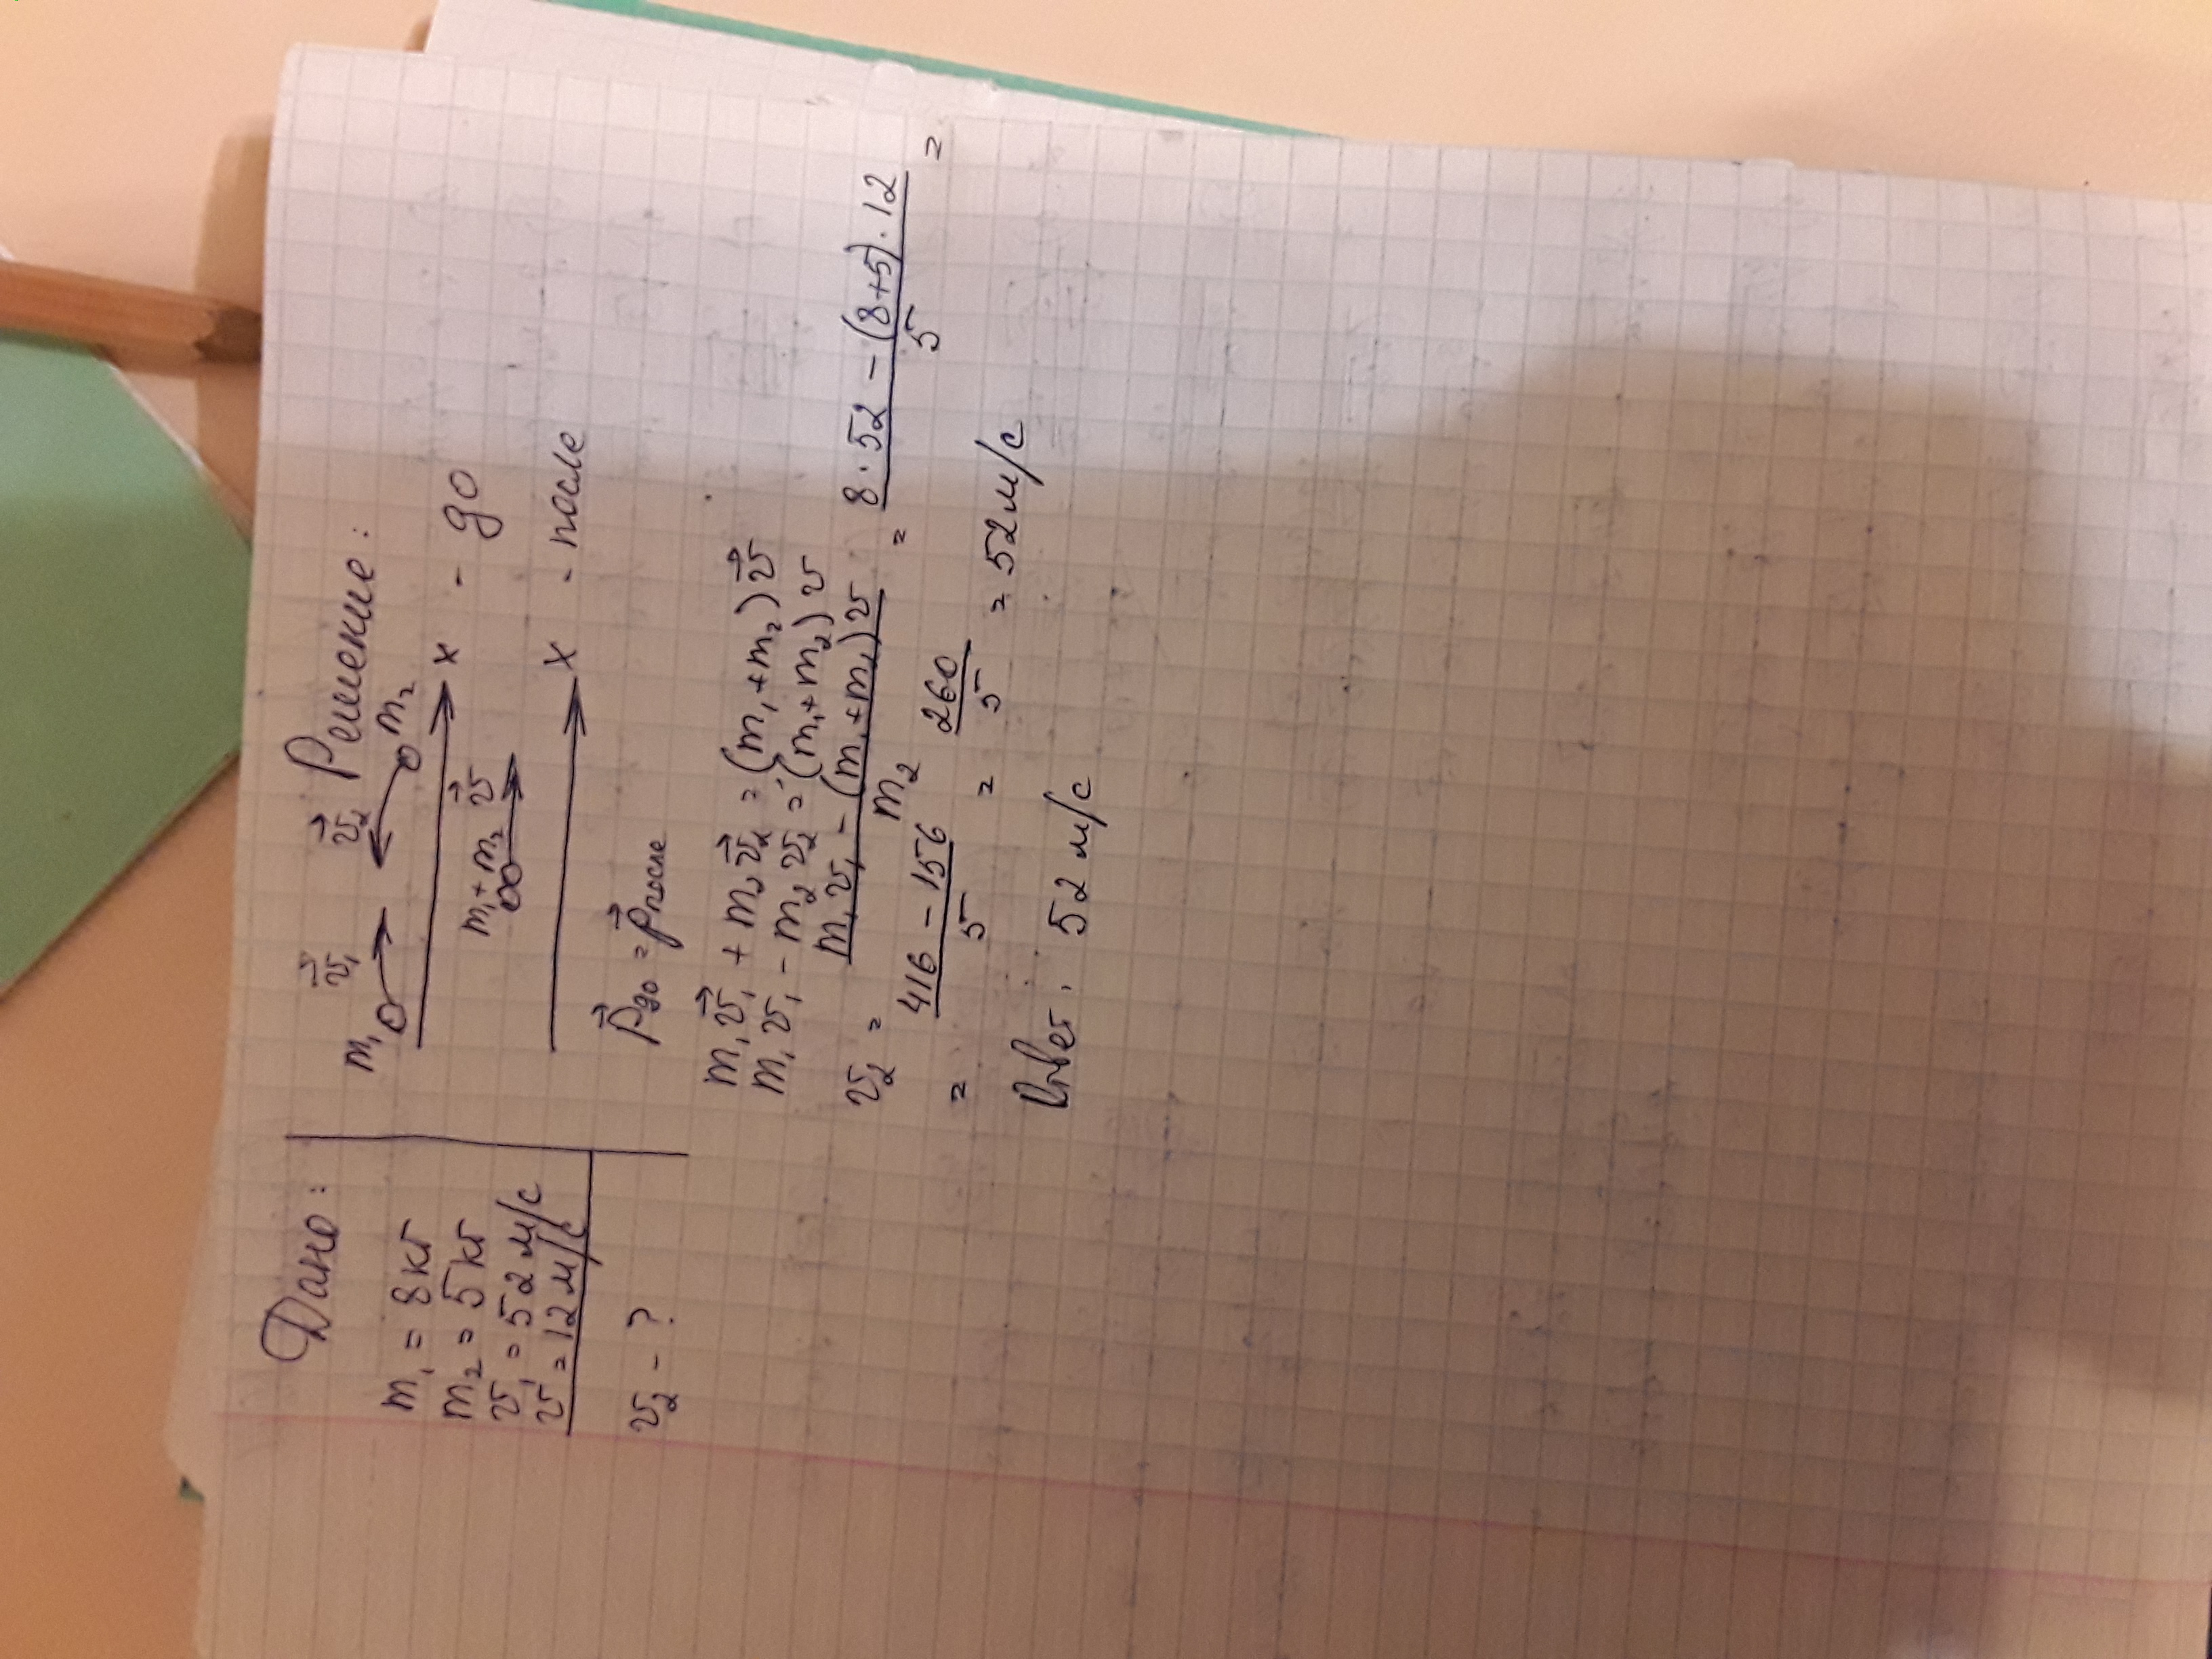 Дано:
m₁ = 8 кг
m₂ = 5 кг
v₁ = 52 м/с
v = 12 м/с
v₂ - ?
Решение:
m₁ v⃗₁ v⃗₂ m₂
x - до
m₁+m₂ v⃗
x - после
p⃗до = p⃗после
m₁v⃗₁ + m₂v⃗₂ = (m₁+m₂)v⃗
m₁v₁ - m₂v₂ = (m₁+m₂)v
v₂ = (m₁v₁ - (m₁+m₂)v)/m₂ = (8·52 - (8+5)·12)/5 =
= (416 - 156)/5 = 260/5 = 52 м/с
Ответ: 52 м/с